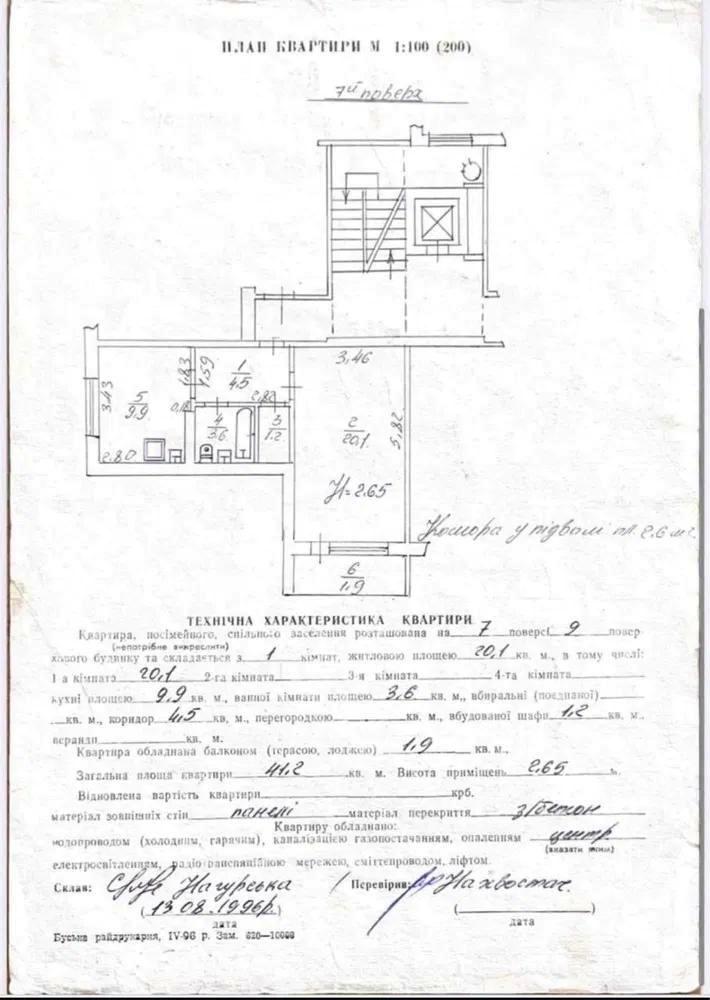 ПЛАН КВАРТИРИ М 1:100 (200)
7й поверх
3,46
1,83
1,59
1
4.5
3,43
5
9.9
0,18
2,82
4
3.6
3
1.2
2
20,1
5,82
2,80
H=2.65
Комора у підвалі пл. 2.6 м²
6
1.9
ТЕХНІЧНА ХАРАКТЕРИСТИКА КВАРТИРИ
Квартира, посімейного, спільного заселення розташована на 7 поверсі 9 повер-
(непотрібне викреслити)
хового будинку та складається з 1 кімнат, житловою площею 20,1 кв. м., в тому числі:
1-а кімната 20,1 2-га кімната 3-я кімната 4-та кімната
кухні площею 9,9 кв. м., ванної кімнати площею 3,6 кв. м., вбиральні (поєднаної)
кв. м., коридор 4,5 кв, м., перегородкою кв. м., вбудованої шафи 1,2 кв. м.,
веранди кв. м.
Квартира обладнана балконом (терасою, лоджею) 1,9 кв. м.,
Загальна площа квартири 41,2 кв. м. Висота приміщень 2.65 м.
Відновлена вартість квартири крб.
матеріал зовнішніх стін панелі матеріал перекриття з/бетон
Квартиру обладнано:
водопроводом (холодним, гарячим), каналізацією газопостачанням, опаленням центр
(вказати яким)
електросвітленням, радіотрансляційною мережею, сміттєпроводом, ліфтом.
Склав: Нагурська / Перевірив: Нахвостач.
(13.08.1996р.) ( )
дата дата
Буська райдрукарня, IV-96 р. Зам. 620—10000